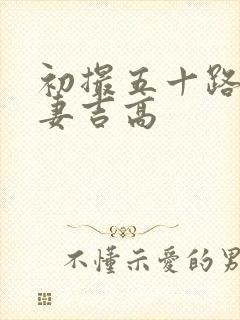 初撮五十路
妻吉高
不懂示愛的男